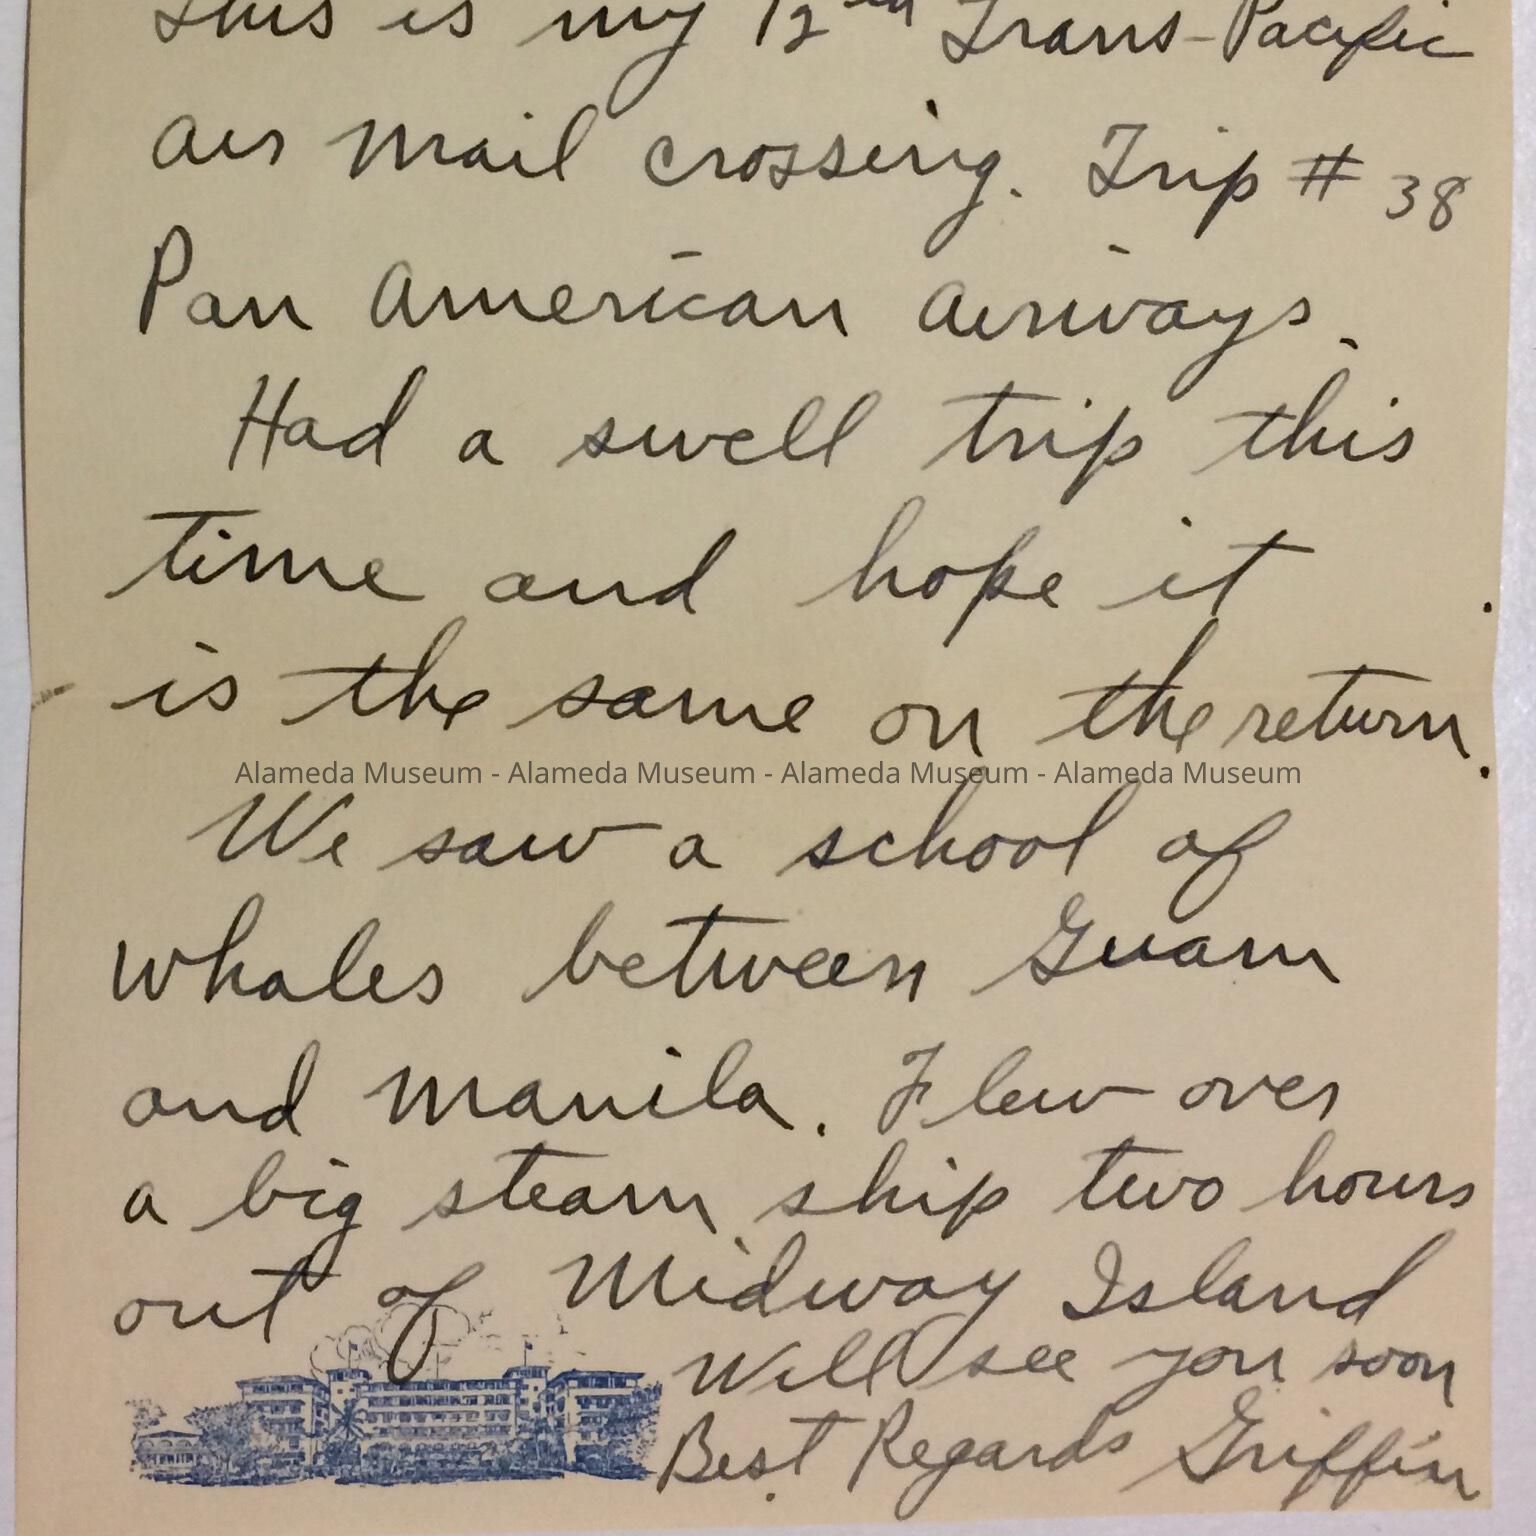 This is my 12nd Trans-Pacific
air mail crossing. Trip # 38
Pan American Airways.
Had a swell trip this
time and hope it
is the same on the return.
Alameda Museum - Alameda Museum - Alameda Museum - Alameda Museum
We saw a school of
whales between Guam
and Manila. Flew over
a big steam ship two hours
out of Midway Island
Will see you soon
Best Regards Griffin